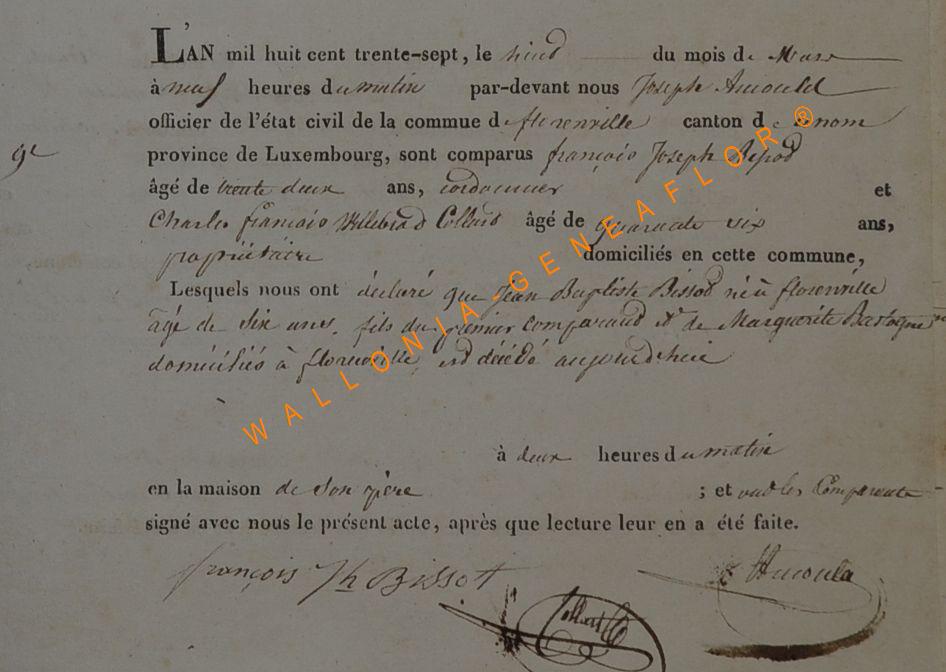 L'AN mil huit cent trente-sept, le huit du mois de Mars
à neuf heures du matin par-devant nous Joseph Arnould
officier de l'état civil de la commue de florenville canton de nom
9e province de Luxembourg, sont comparus françois Joseph Bissot
âgé de trente deux ans, cordonnier et
Charles françois Collard âgé de quarante six ans,
propriétaire domiciliés en cette commune,
Lesquels nous ont déclaré que Jean Baptiste Bissot né à florenville
âgé de six ans, fils du premier comparant et de Marguerite Bastogne
domiciliés à florenville, est décédé aujourdhui
à deux heures du matin
en la maison de son père ; et ont les Comparents
signé avec nous le présent acte, après que lecture leur en a été faite.
françois Jh Bissot Arnould
Collard
WALLONIA-GENEAFLOR®